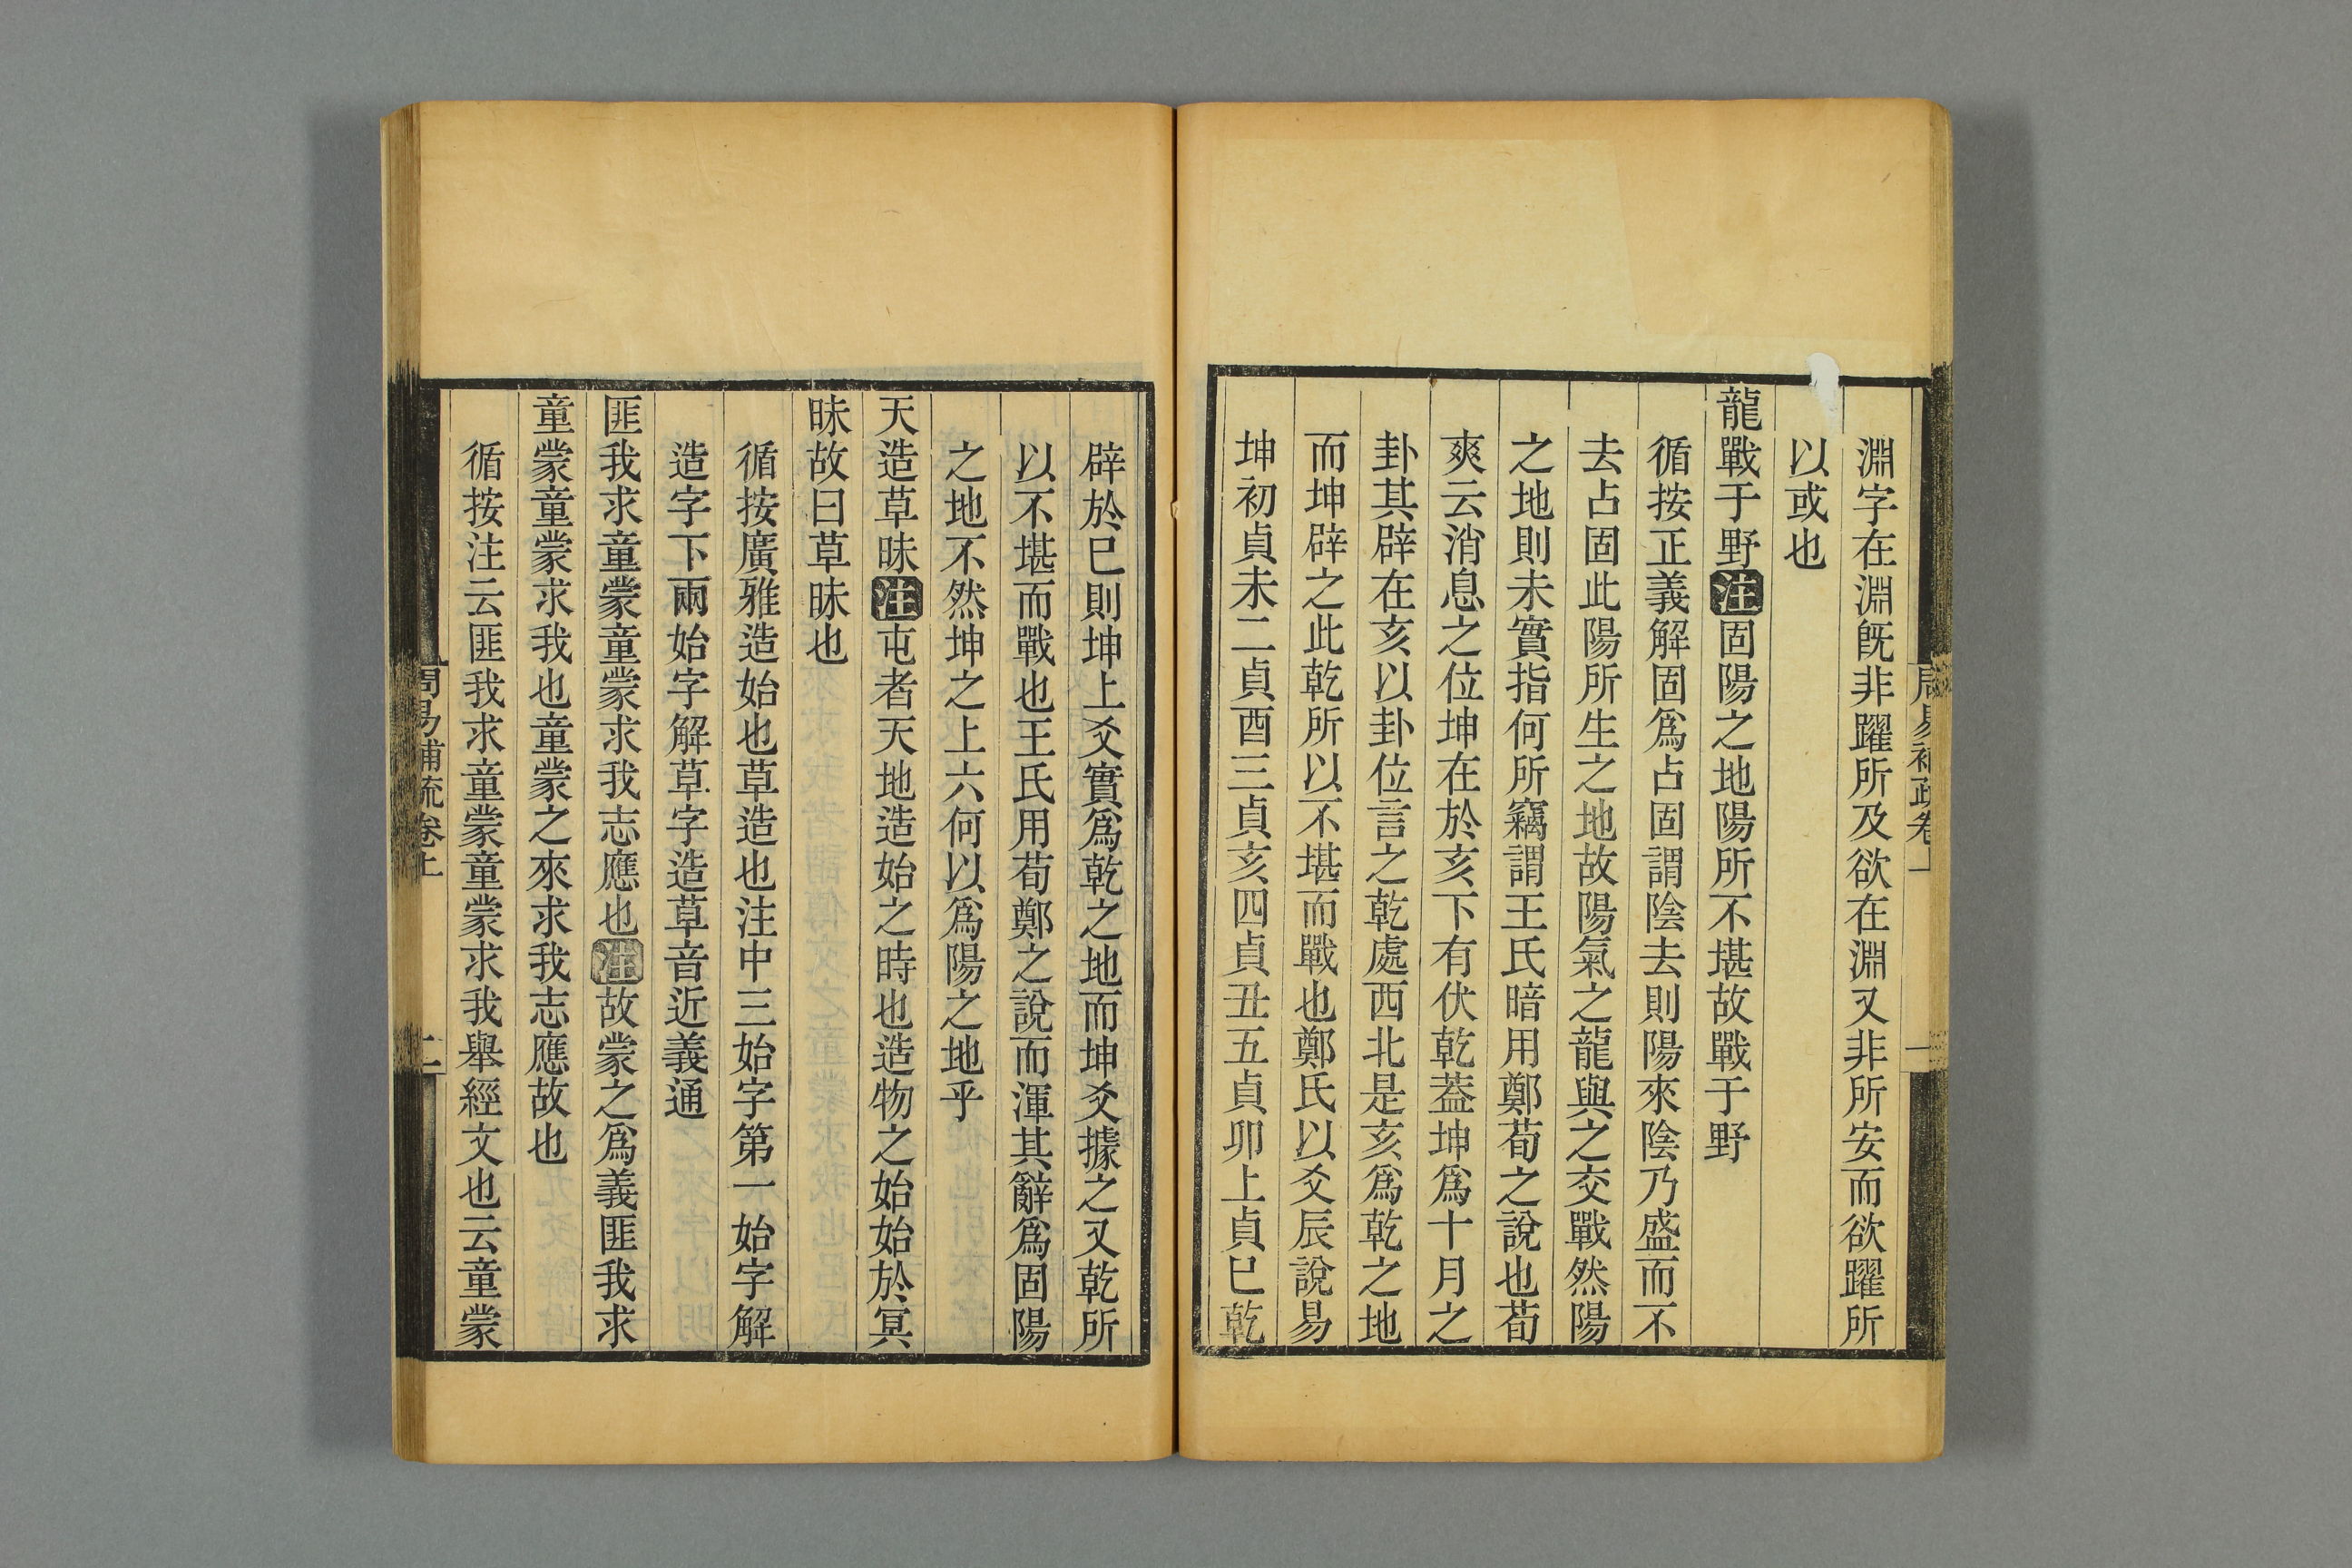 周易補疏卷上
一
淵字在淵旣非躍所及欲在淵又非所安而欲躍所
以或也
龍戰于野注固陽之地陽所不堪故戰于野
循按正義解固爲占固謂陰去則陽來陰乃盛而不
去占固此陽所生之地故陽氣之龍與之交戰然陽
之地則未實指何所竊謂王氏暗用鄭荀之說也荀
爽云消息之位坤在於亥下有伏乾蓋坤爲十月之
卦其辟在亥以卦位言之乾處西北是亥爲乾之地
而坤辟之此乾所以不堪而戰也鄭氏以爻辰說易
坤初貞未二貞酉三貞亥四貞丑五貞卯上貞巳乾
辟於巳則坤上爻實爲乾之地而坤爻據之又乾所
以不堪而戰也王氏用荀鄭之說而渾其辭爲固陽
之地不然坤之上六何以爲陽之地乎
天造草昧注屯者天地造始之時也造物之始始於冥
昧故曰草昧也
循按廣雅造始也草造也注中三始字第一始字解
造字下兩始字解草字造草音近義通
匪我求童蒙童蒙求我志應也注故蒙之爲義匪我求
童蒙童蒙求我也童蒙之來求我志應故也
循按注云匪我求童蒙童蒙求我舉經文也云童蒙
周易補疏卷上
二